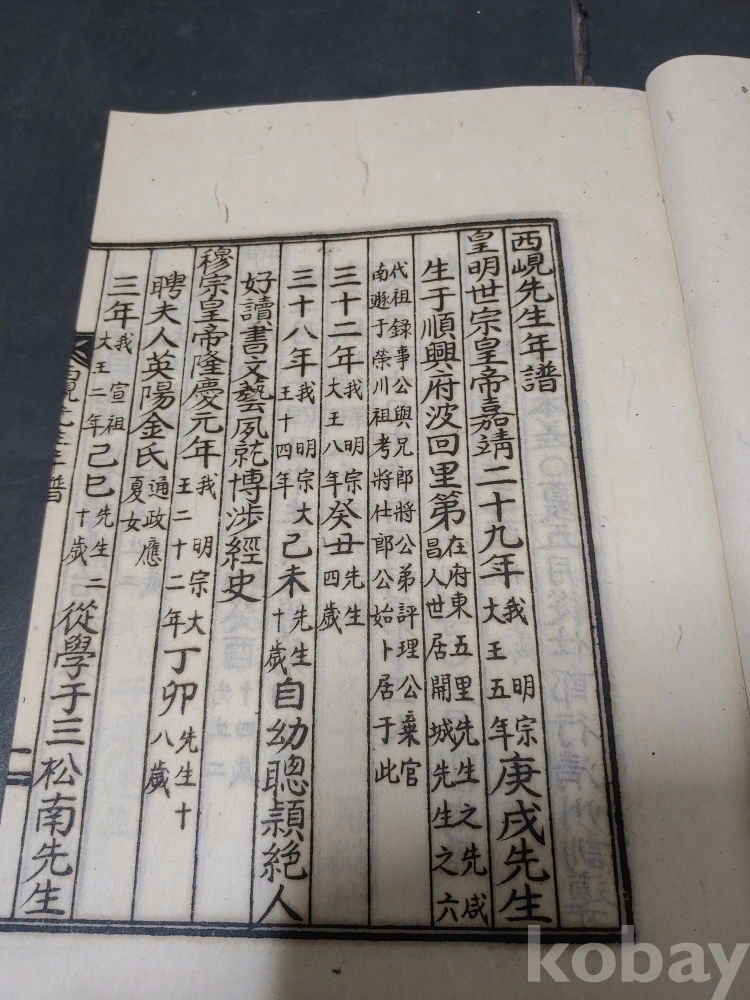 西峴先生年譜
皇明世宗皇帝嘉靖二十九年我 明宗大王五年庚戌先生
生于順興府波回里第在府東五里先生之先咸昌人世居開城先生之六
代祖錄事公與兄郎將公弟評理公棄官南遊于榮川祖考將仕郎公始卜居于此
三十二年我 明宗大王八年癸丑先生四歲
三十八年我 明宗大王十四年己未先生十歲自幼聰穎絶人
好讀書文藝夙就博涉經史
穆宗皇帝隆慶元年我 明宗大王二十二年丁卯先生十八歲
聘夫人英陽金氏通政應夏女
三年我 宣祖大王二年己巳先生二十歲從學于三松南先生
西峴先生年譜
一
kobay